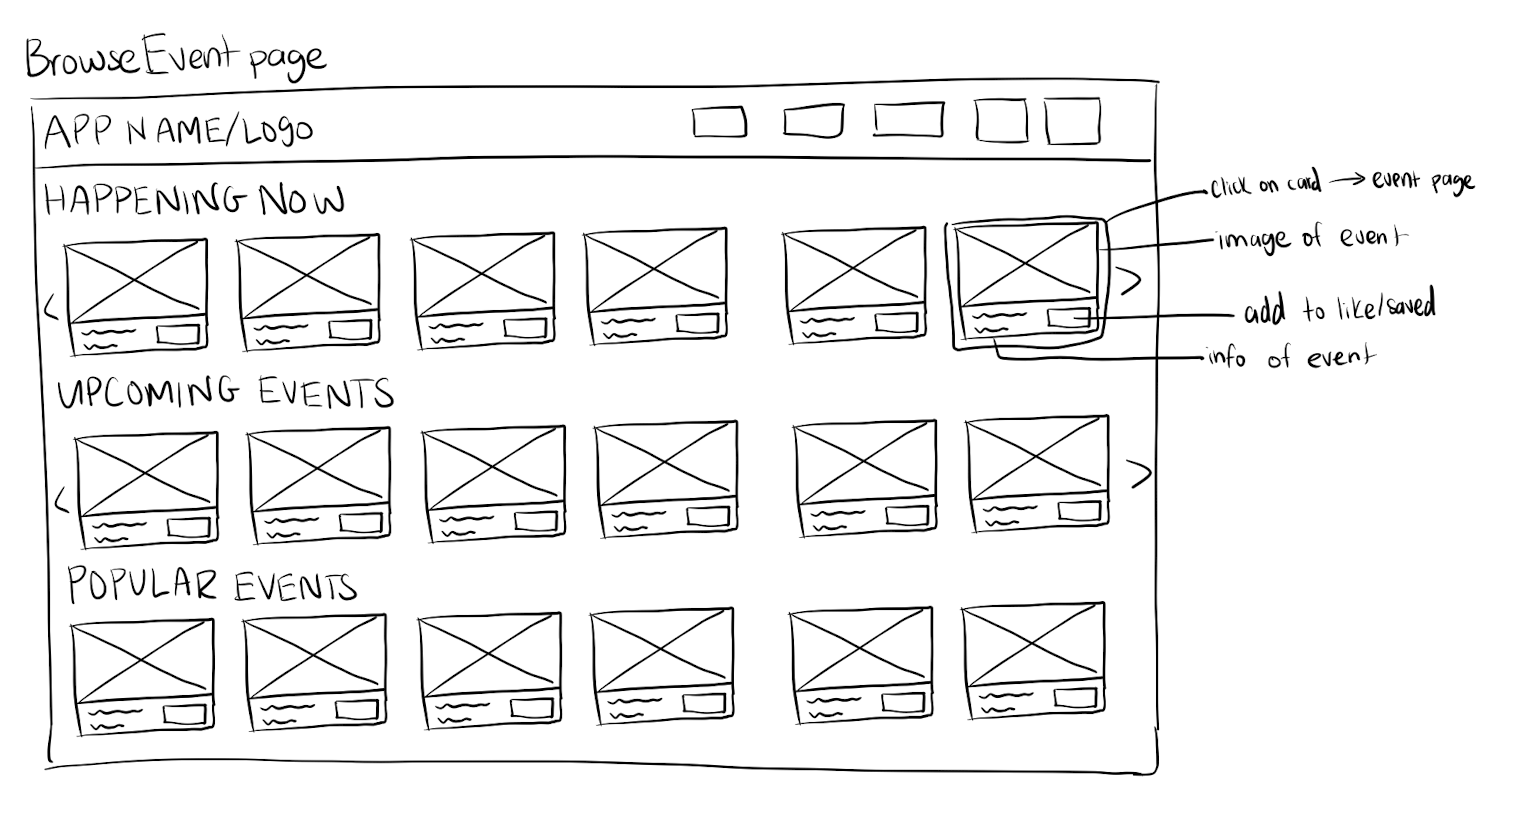 Browse Event page
APP NAME/LOGO
HAPPENING NOW
click on card → event page
image of event
add to like/saved
info of event
<
>
UPCOMING EVENTS
<
>
POPULAR EVENTS